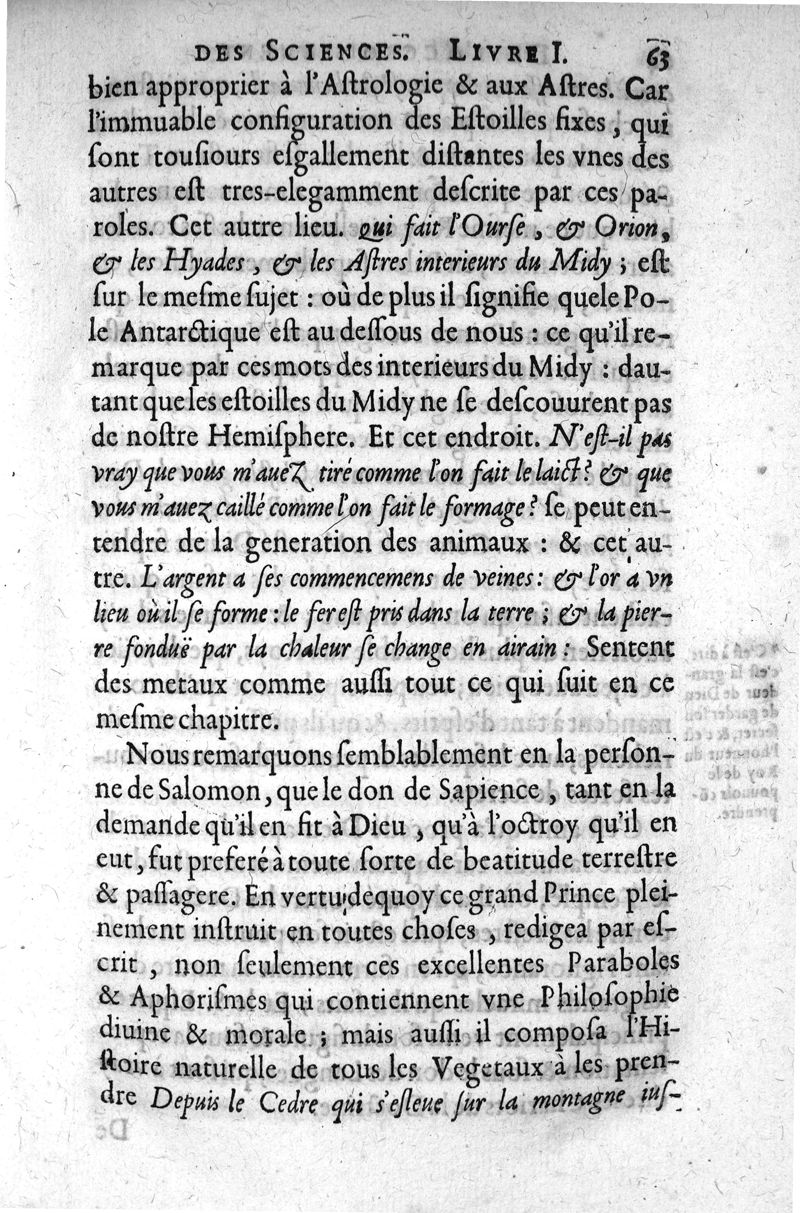 DES SCIENCES. LIVRE I. 63
bien approprier à l'Aſtrologie & aux Aſtres. Car
l'immuable configuration des Eſtoilles fixes, qui
ſont touſiours eſgallement diſtantes les vnes des
autres eſt tres-elegamment deſcrite par ces pa-
roles. Cet autre lieu. qui fait l'Ourſe, & Orion,
& les Hyades, & les Aſtres interieurs du Midy; eſt
ſur le meſme ſujet: où de plus il ſignifie quele Po-
le Antarctique eſt au deſſous de nous: ce qu'il re-
marque par ces mots des interieurs du Midy: dau-
tant que les eſtoilles du Midy ne ſe deſcouurent pas
de noſtre Hemiſphere. Et cet endroit. N'eſt-il pas
vray que vous m'auez tiré comme l'on fait le laict? & que
vous m'auez caillé comme l'on fait le formage? ſe peut en-
tendre de la generation des animaux: & cet au-
tre. L'argent a ſes commencemens de veines: & l'or a vn
lieu où il ſe forme: le fer eſt pris dans la terre; & la pier-
re fonduë par la chaleur ſe change en airain: Sentent
des metaux comme auſſi tout ce qui ſuit en ce
meſme chapitre.
Nous remarquons ſemblablement en la perſon-
ne de Salomon, que le don de Sapience, tant en la
demande qu'il en fit à Dieu, qu'à l'octroy qu'il en
eut, fut preferé à toute ſorte de beatitude terreſtre
& paſſagere. En vertu dequoy ce grand Prince plei-
nement inſtruit en toutes choſes, redigea par eſ-
crit, non ſeulement ces excellentes Paraboles
& Aphoriſmes qui contiennent vne Philoſophie
diuine & morale; mais auſſi il compoſa l'Hi-
ſtoire naturelle de tous les Vegetaux à les pren-
dre Depuis le Cedre qui s'eſleue ſur la montagne iuſ-